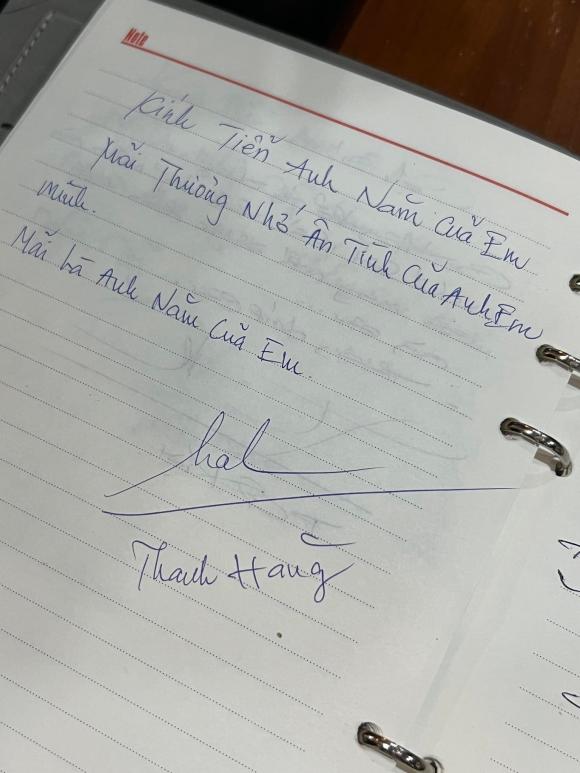 Note
Kính Tiễn Anh Năm Của Em
Mãi Thương Nhớ Ân Tình Của Anh Em
Mình.
Mãi Là Anh Năm Của Em.
Thanh Hằng